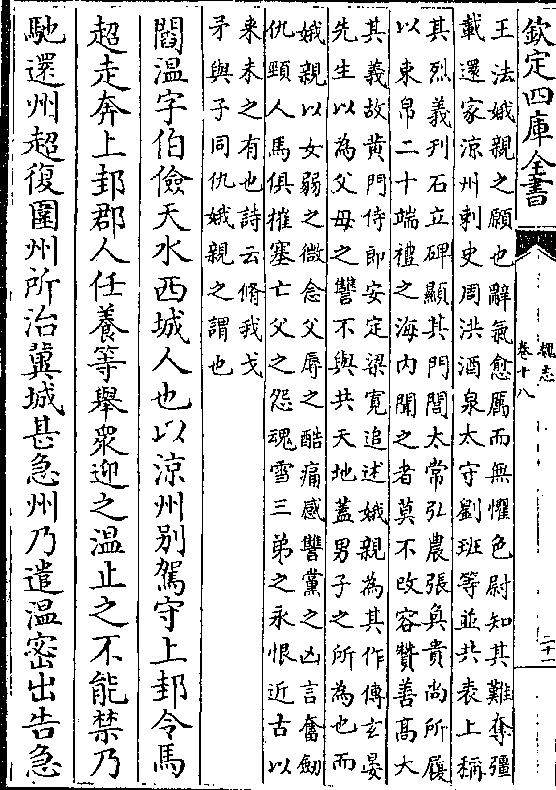 欽定四庫全書
魏志
卷十八
二十一
王法娥親之願也辭氣愈厲而無懼色尉知其難奪彊
載還家涼州刺史周洪酒泉太守劉班等並共表上稱
其烈義刋石立碑顯其門閭太常弘農張奐貴尚所履
以束帛二十端禮之海内聞之者莫不改容贊善髙大
其義故黄門侍郎安定梁寛追述娥親為其作傳玄晏
先生以為父母之讐不與共天地蓋男子之所為也而
娥親以女弱之微念父辱之酷痛感讐黨之凶言奮劒
仇頸人馬俱摧塞亡父之怨魂雪三弟之永恨近古以
来未之有也詩云脩我戈
矛與子同仇娥親之謂也
閻溫字伯儉天水西城人也以涼州别駕守上邽令馬
超走奔上邽郡人任養等舉衆迎之溫止之不能禁乃
馳還州超復圍州所治冀城甚急州乃遣溫密出告急